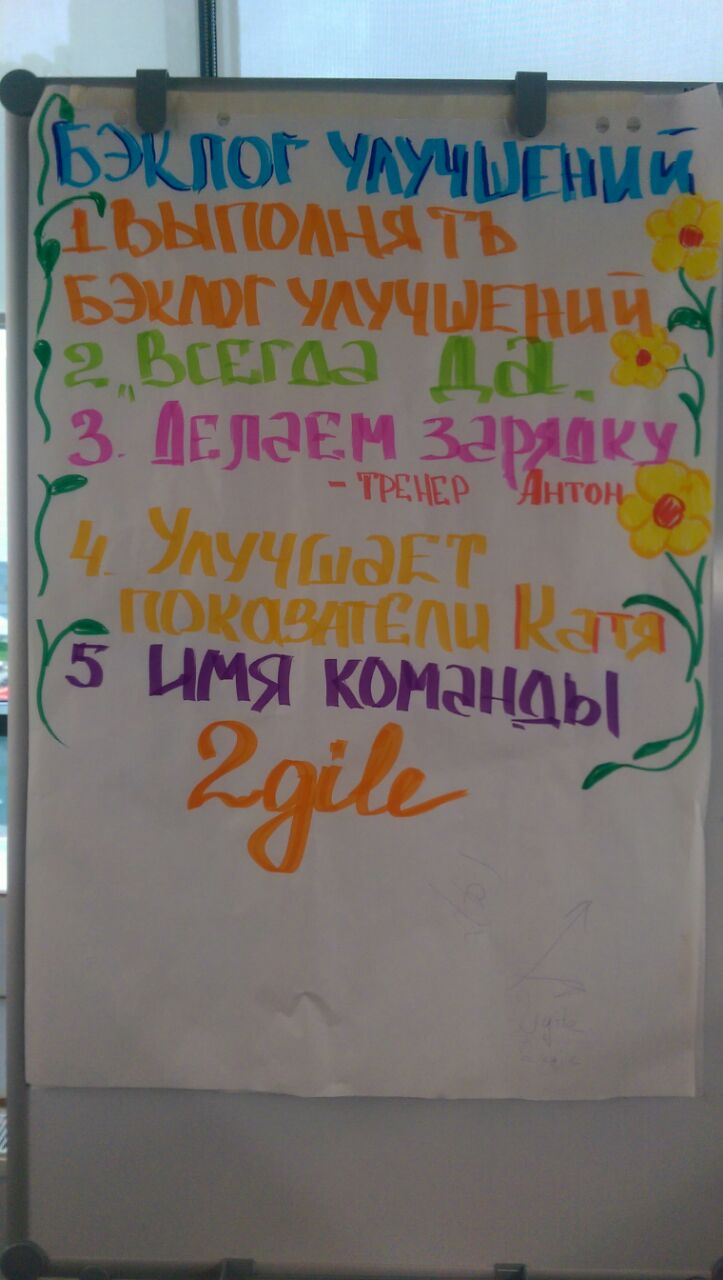 БЭКЛОГ УЛУЧШЕНИЙ
1 ВЫПОЛНЯТЬ
БЭКЛОГ УЛУЧШЕНИЙ
2. „ВСЕГДА ДА.
3. ДЕЛАЕМ ЗАРЯДКУ
- ТРЕНЕР АНТОН
4. УЛУЧШАЕТ
ПОКАЗАТЕЛИ КАТЯ
5 ИМЯ КОМАНДЫ
2gile